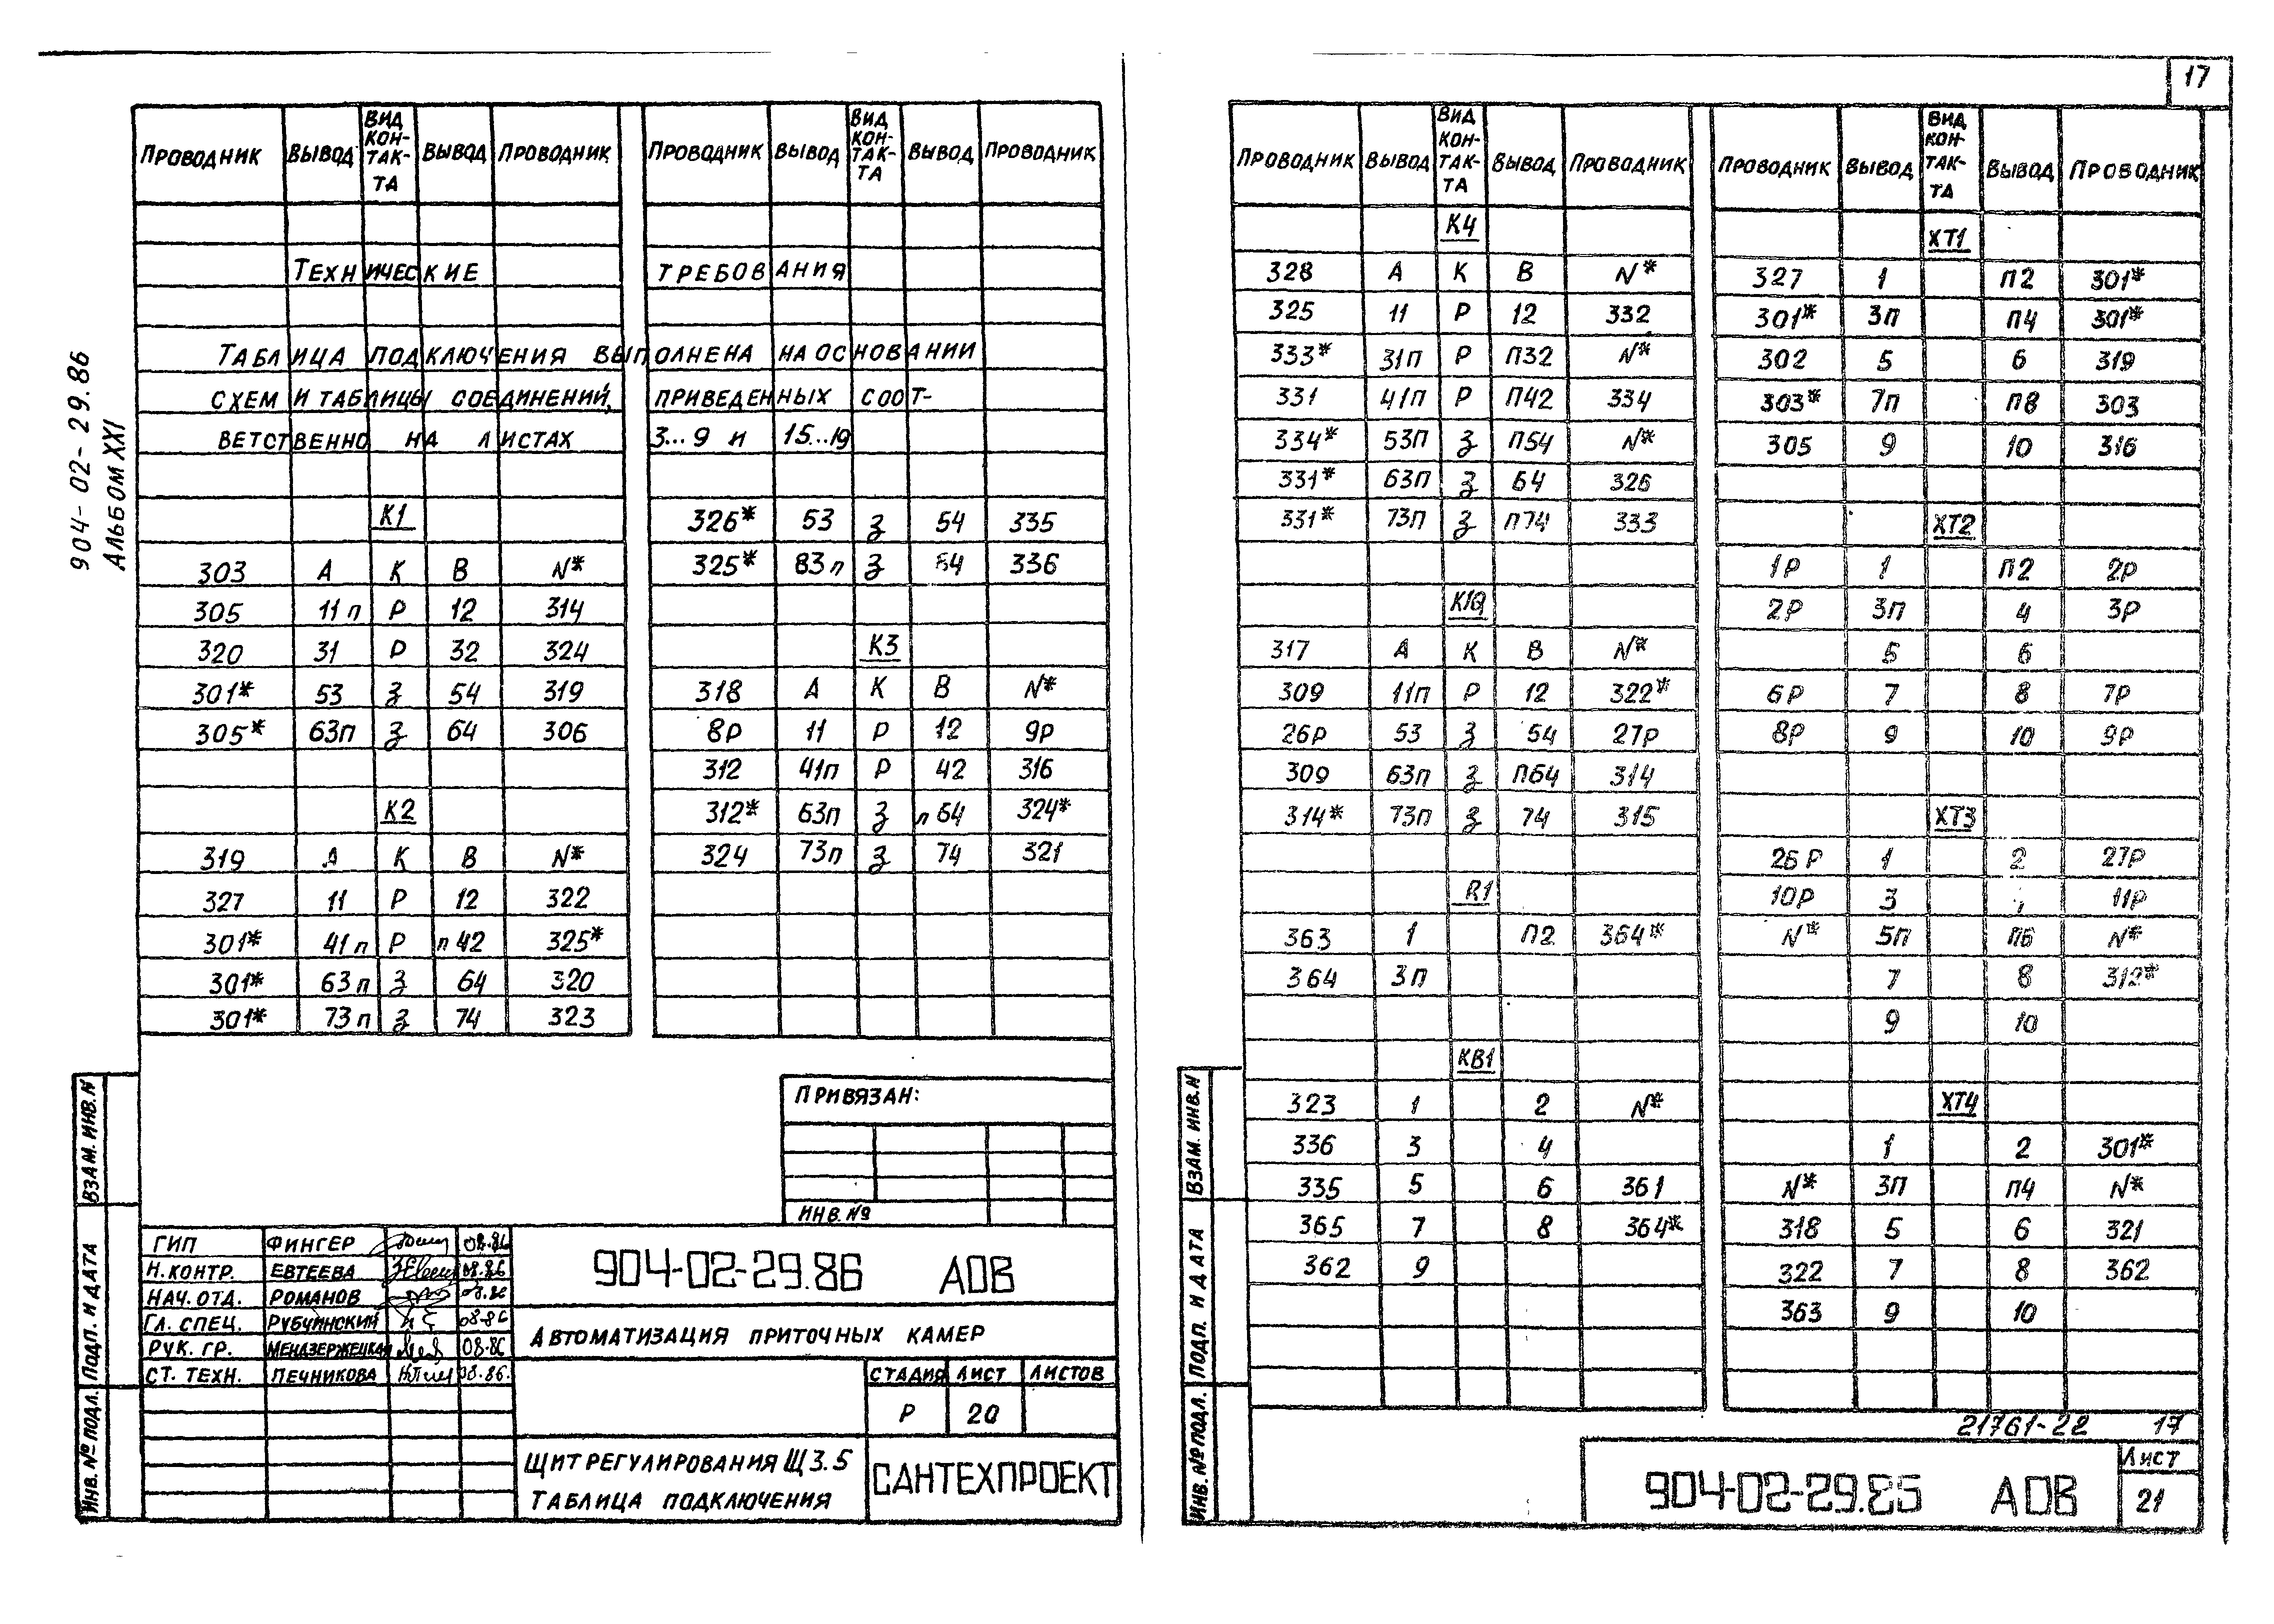 17
904-02-29.86
АЛЬБОМ XXI
ПРОВОДНИК ВЫВОД ВИД КОН-ТАК-ТА ВЫВОД ПРОВОДНИК
ТЕХНИЧЕСКИЕ ТРЕБОВАНИЯ
ТАБЛИЦА ПОДКЛЮЧЕНИЯ ВЫПОЛНЕНА НА ОСНОВАНИИ
СХЕМ И ТАБЛИЦЫ СОЕДИНЕНИЙ, ПРИВЕДЕННЫХ СООТ-
ВЕТСТВЕННО НА ЛИСТАХ 3...9 И 15...19
К1
303 А К В N*
305 11п Р 12 314
320 31 Р 32 324
301* 53 З 54 319
305* 63п З 64 306
К2
319 А К В N*
327 11 Р 12 322
301* 41п Р п42 325*
301* 63п З 64 320
301* 73п З 74 323
ПРОВОДНИК ВЫВОД ВИД КОН-ТАК-ТА ВЫВОД ПРОВОДНИК
326* 53 З 54 335
325* 83п З 336
К3
318 А К В N*
8Р 11 Р 12 9Р
312 41п Р 42 316
312* 63п З п64 324*
324 73п З 74 321
ПРИВЯЗАН:
ИНВ.№
ВЗАМ. ИНВ. N
ПОДП. И ДАТА
ИНВ. № ПОДЛ.
ГИП ФИНГЕР 08.86
Н.КОНТР. ЕВТЕЕВА 08.86
НАЧ. ОТД. РОМАНОВ 08.86
ГЛ. СПЕЦ. РУБЧИНСКИЙ 08.86
РУК. ГР. МЕНДЗЕРЖЕЦКАЯ 08.86
СТ. ТЕХН. ПЕЧНИКОВА 08.86.
904-02-29.86 АОВ
АВТОМАТИЗАЦИЯ ПРИТОЧНЫХ КАМЕР
СТАДИЯ ЛИСТ ЛИСТОВ
Р 20
ЩИТ РЕГУЛИРОВАНИЯ Щ3.5
ТАБЛИЦА ПОДКЛЮЧЕНИЯ
САНТЕХПРОЕКТ
ПРОВОДНИК ВЫВОД ВИД КОН-ТАК-ТА ВЫВОД ПРОВОДНИК
К4
328 А К В N*
325 11 Р 12 332
333* 31П Р П32 N*
331 41П Р П42 334
334* 53П З П54 N*
331* 63П З 64 326
331* 73П З П74 333
К10
317 А К В N*
309 11П Р 12 322*
26Р 53 З 54 27Р
309 63П З П64 314
314* 73П З 74 315
R1
363 1 П2 364*
364 3П
КВ1
323 1 2 N*
336 3 4
335 5 6 361
365 7 8 364*
362 9
ПРОВОДНИК ВЫВОД ВИД КОН-ТАК-ТА ВЫВОД ПРОВОДНИК
ХТ1
327 1 П2 301*
301* 3П П4 301*
302 5 6 319
303* 7П П8 303
305 9 10 316
ХТ2
1Р 1 П2 2Р
2Р 3П 4 3Р
5 6
6Р 7 8 7Р
8Р 9 10 9Р
ХТ3
26Р 1 2 27Р
10Р 3 11Р
N* 5П П6 N*
7 8 312*
9 10
ХТ4
1 2 301*
N* 3П П4 N*
318 5 6 321
322 7 8 362
363 9 10
21761-22 17
ВЗАМ. ИНВ. N
ПОДП. И ДАТА
ИНВ. № ПОДЛ.
904-02-29.86 АОВ
ЛИСТ
21